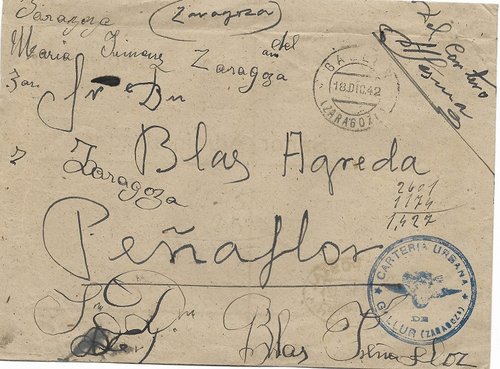 Zaragoza
(Zaragoza)
Maria
Zaragoza
del
Del Cartero
GALLUR
18.DIC.42
(ZARAGOZA)
Sr Dn
Blas Agreda
Zaragoza
2601
1174
1,427
Peñaflor
CARTERIA URBANA
DE
GALLUR (ZARAGOZA)
Blas Peñafloz